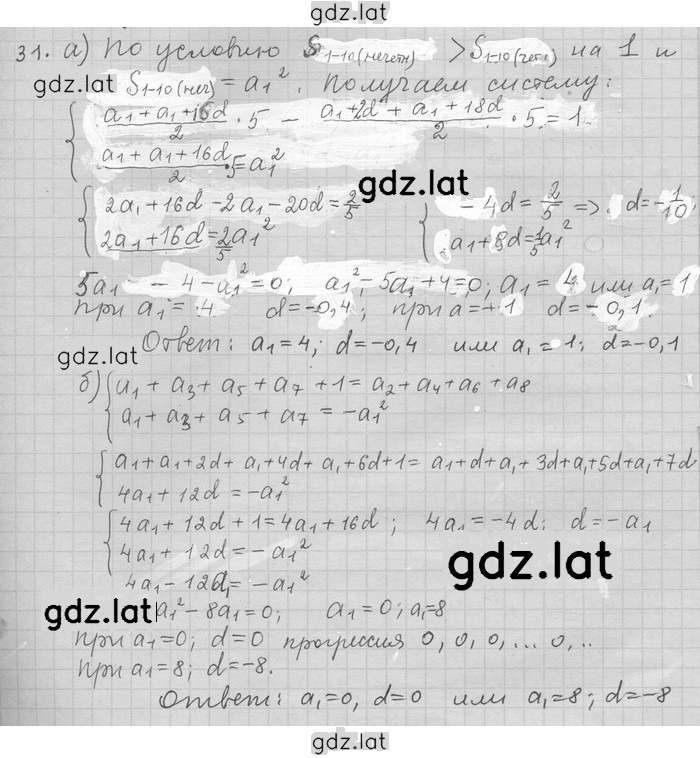 gdz.lat
31. а) По условию S1-10(нечетн) > S1-10(чет) на 1 и
gdz.lat S1-10(неч) = a1². Получаем систему:
{ (a1 + a1 + 16d)/2 · 5 - (a1 + 2d + a1 + 18d)/2 · 5 = 1
(a1 + a1 + 16d)/2 · 5 = a1²
gdz.lat
{ 2a1 + 16d - 2a1 - 20d = 2/5 { - 4d = 2/5 => d = -1/10;
2a1 + 16d = 2/5 a1² a1 + 8d = 1/5 a1²
5a1 - 4 - a1² = 0; a1² - 5a1 + 4 = 0; a1 = 4 или a1 = 1
при a1 = 4 d = -0,4; при a = +1 d = -0,1.
Ответ: a1 = 4; d = -0,4 или a1 = 1; d = -0,1
gdz.lat
б) { a1 + a3 + a5 + a7 + 1 = a2 + a4 + a6 + a8
a1 + a3 + a5 + a7 = -a1²
{ a1 + a1 + 2d + a1 + 4d + a1 + 6d + 1 = a1 + d + a1 + 3d + a1 + 5d + a1 + 7d
4a1 + 12d = -a1²
{ 4a1 + 12d + 1 = 4a1 + 16d; 4a1 = -4d; d = -a1
4a1 + 12d = -a1²
gdz.lat
4a1 - 12a1 = -a1²
gdz.lat a1² - 8a1 = 0; a1 = 0; a1 = 8
при a1 = 0; d = 0 прогрессия 0, 0, 0, ... 0, ..
при a1 = 8; d = -8.
Ответ: a1 = 0, d = 0 или a1 = 8; d = -8
gdz.lat